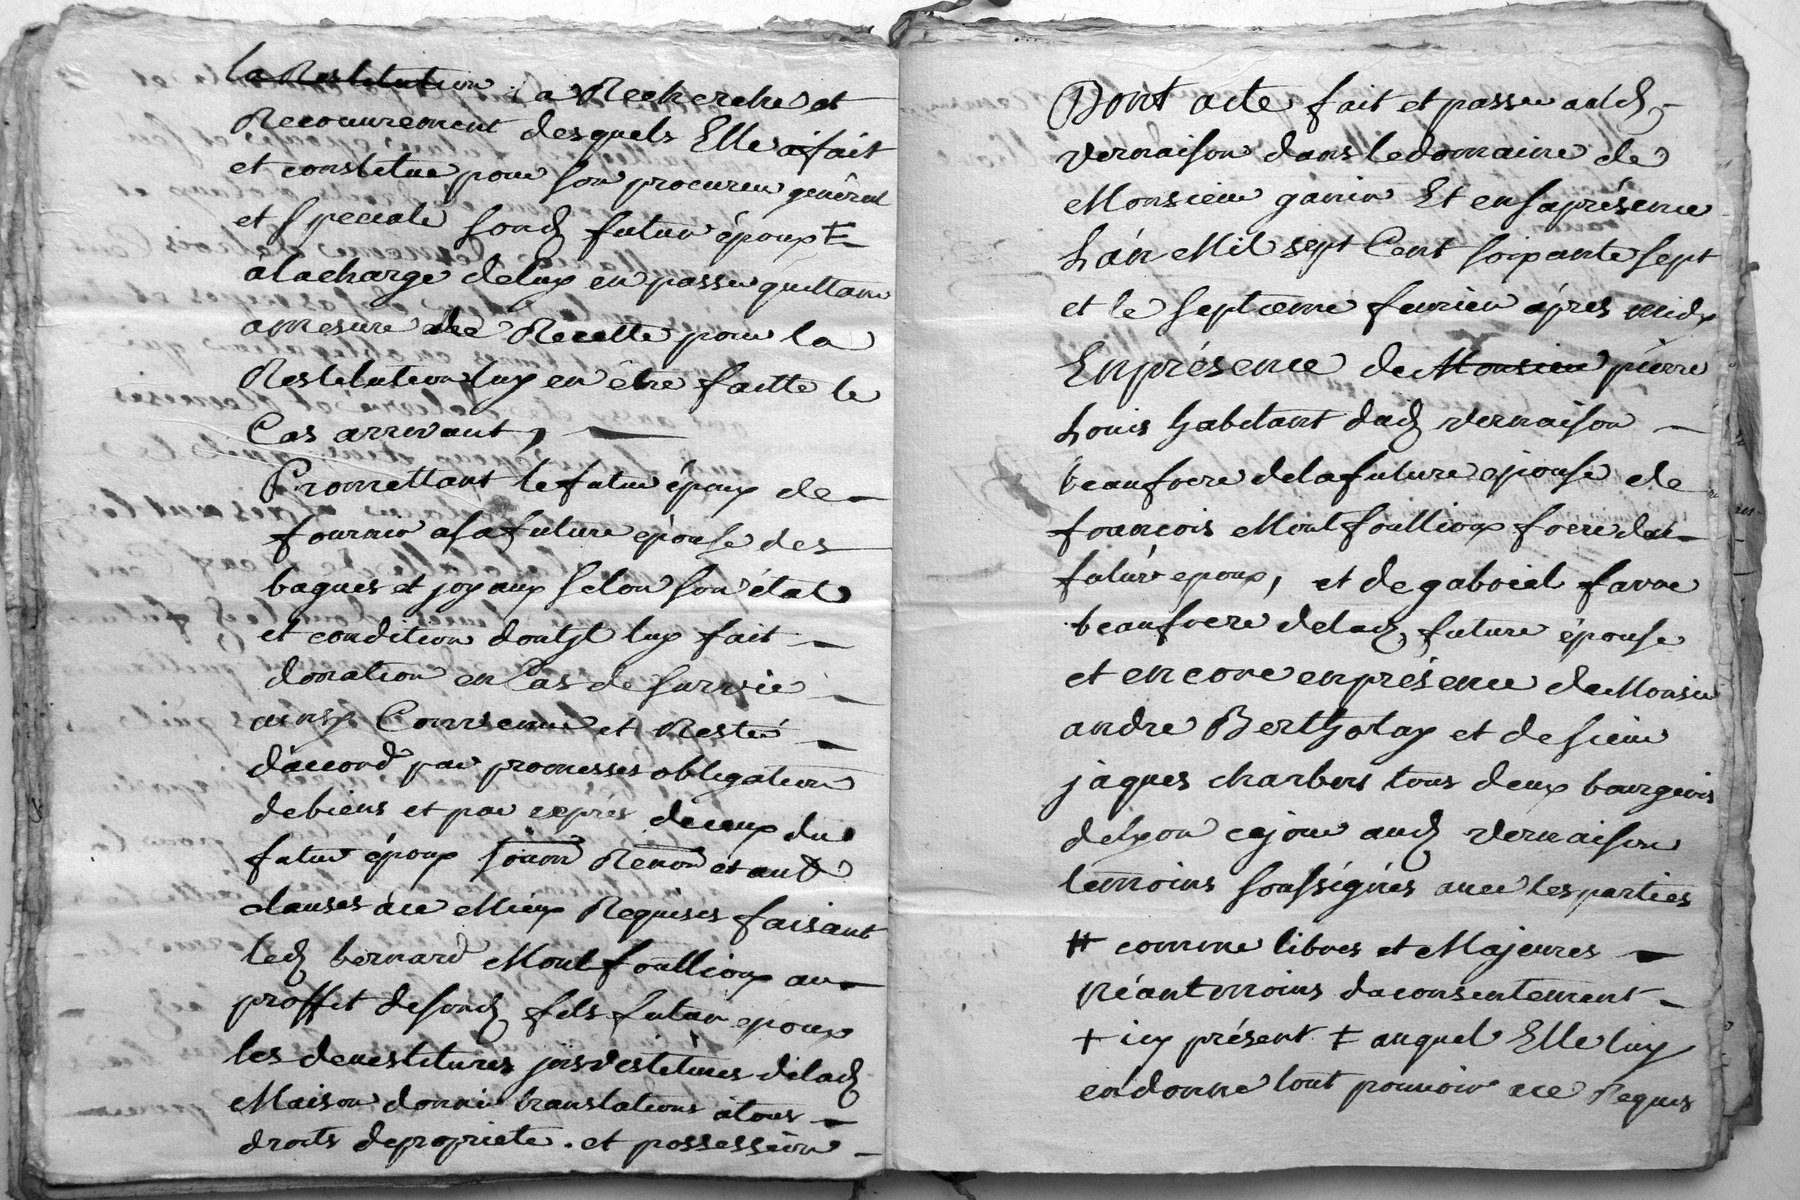 la Restitution la Recherche et
Recouurement desquels Elle a fait
et constitue pour son procureur genéral
et speciale sond futur époux ‡
a la charge deluy en passer quittance
amesure de Recette pour la
Restitution luy en être faitte le
Cas arrivant,
Promettant le futur époux de
fournir asa future épouse des
bagues et joyaux selon son état
et condition dont Il luy fait
donation en Cas de survie
ainsy Convenu et Resté
d'accord par promesses obligation
de biens et par exprés de ceux du
futur époux Renon et aut
clauses a ce Mieux Requises faisant
led bernard Montfoullioux au
proffit de sond fils futur epoux
les devestitures jnvestitures delad
Maison donnin translations a tous
droits de proprieté. et possession
Dont acte fait et passé aud
vernaison dans le domaine de
Monsieur ganin Et en sa présence
L'an Mil sept Cent soixante sept
et le septieme feurier áprés midy
En présence de Monsieur pierre
Louis habitant dud vernaison
beaufrere dela future epouse de
francois Montfoullioux frere du
futúr epoux, et de gabriel favre
beaufrere delad future épouse
et encore en présence de Monsieur
andre Bertholay et de sieur
jaques charbons tous deux bourgeois
delyon ce jour aud vernaison
temoins soussignés avec les parties
# comme libres et Majeures
Néantmoins du consentement
+ icy présent ‡ auquel Elle luy
en donne tout pouvoir a ce Requis